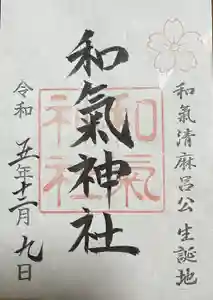 和氣清麻呂公生誕地
和氣神社
和氣神社
令和五年十二月九日